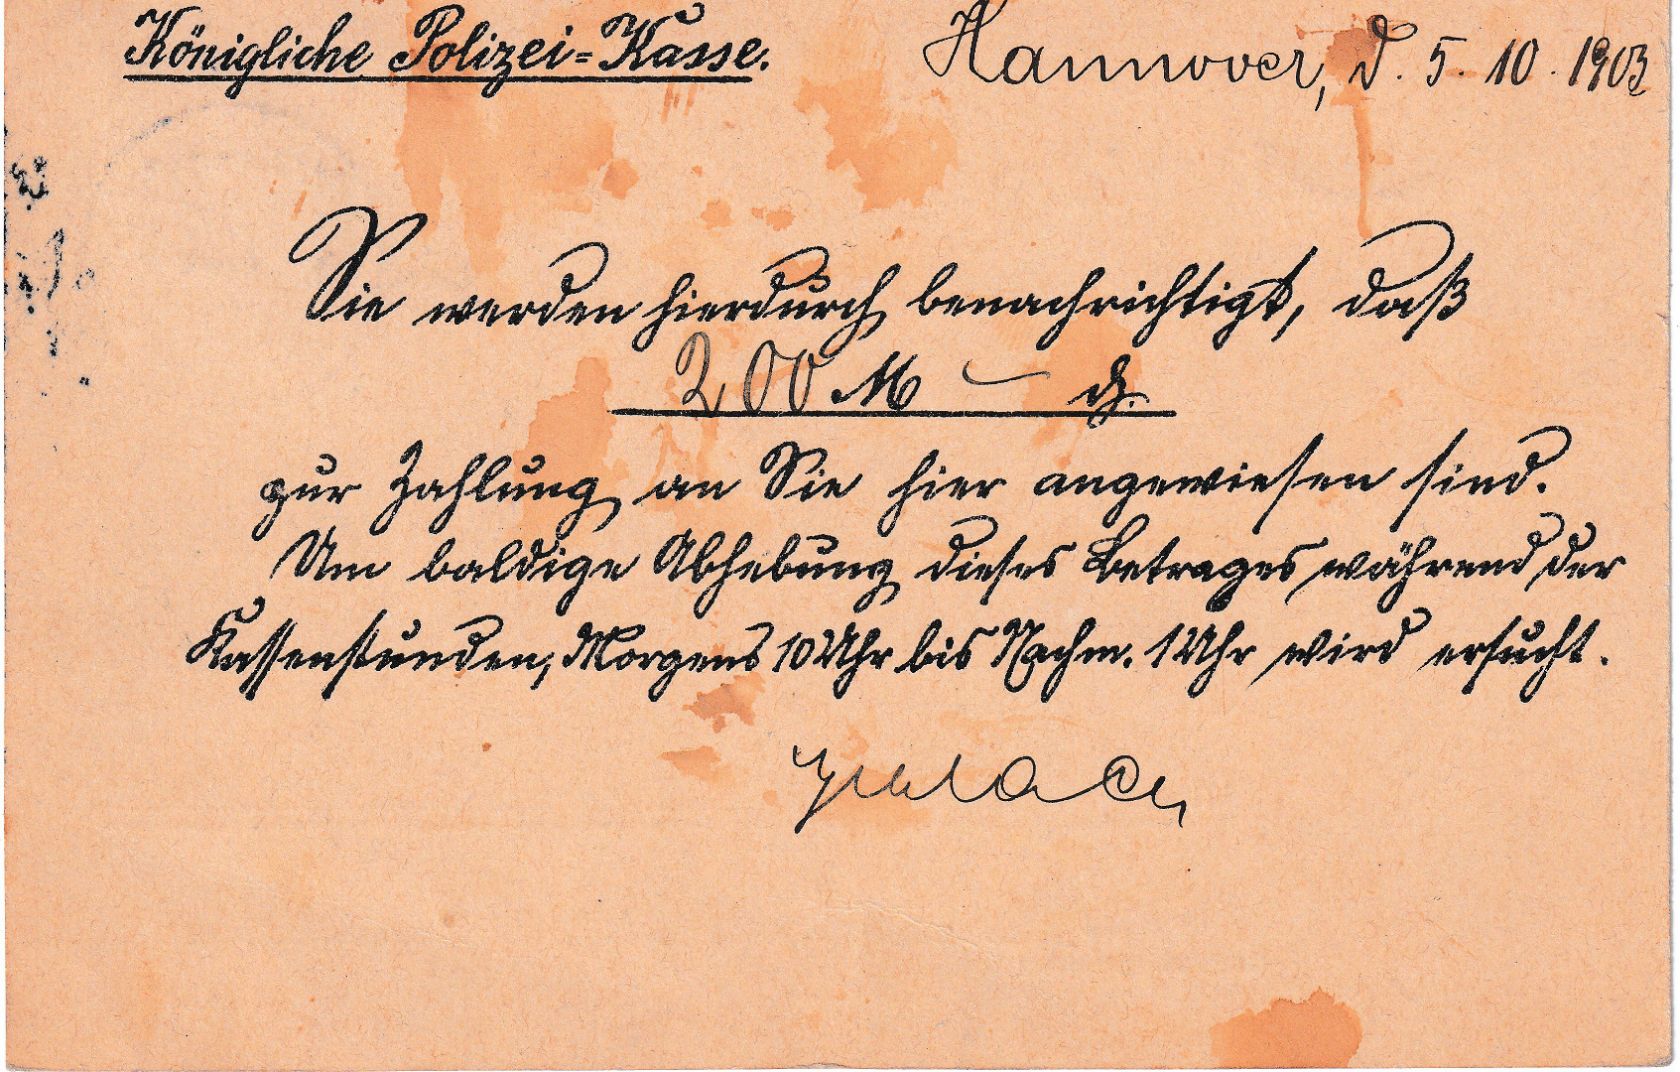 Königliche Polizei-Kasse.
Hannover, d. 5. 10. 1903
Sie werden hierdurch benachrichtigt, daß
200 M — ₰.
zur Zahlung an Sie hier angewiesen sind.
Um baldige Abhebung dieses Betrages während der
Kassenstunden, Morgens 10 Uhr bis Nachm. 1 Uhr wird ersucht.